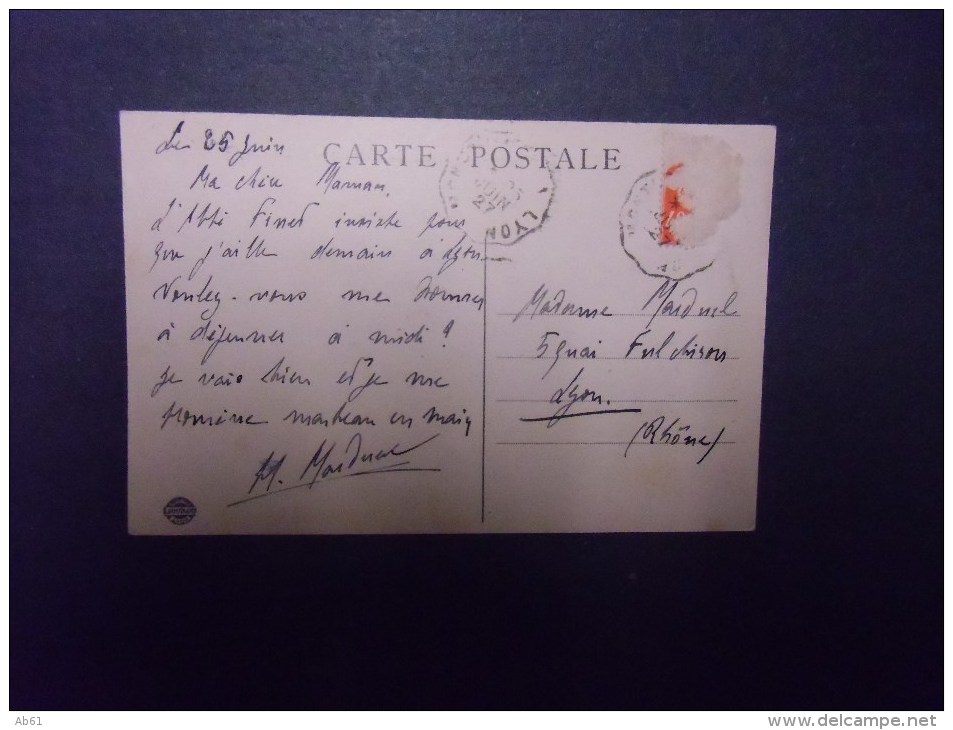 Le 25 Juin
CARTE POSTALE
Ma chère Maman,
L'Abbé Finet insiste pour
que j'aille demain à Lyon
Voulez-vous me donner
à déjeuner à midi ?
Je vais bien et je me
promène en main
M. Marduel
JUIN
27
LYON
Madame Marduel
5 quai Fulchiron
Lyon.
(Rhône)
Ab61
www.delcampe.net